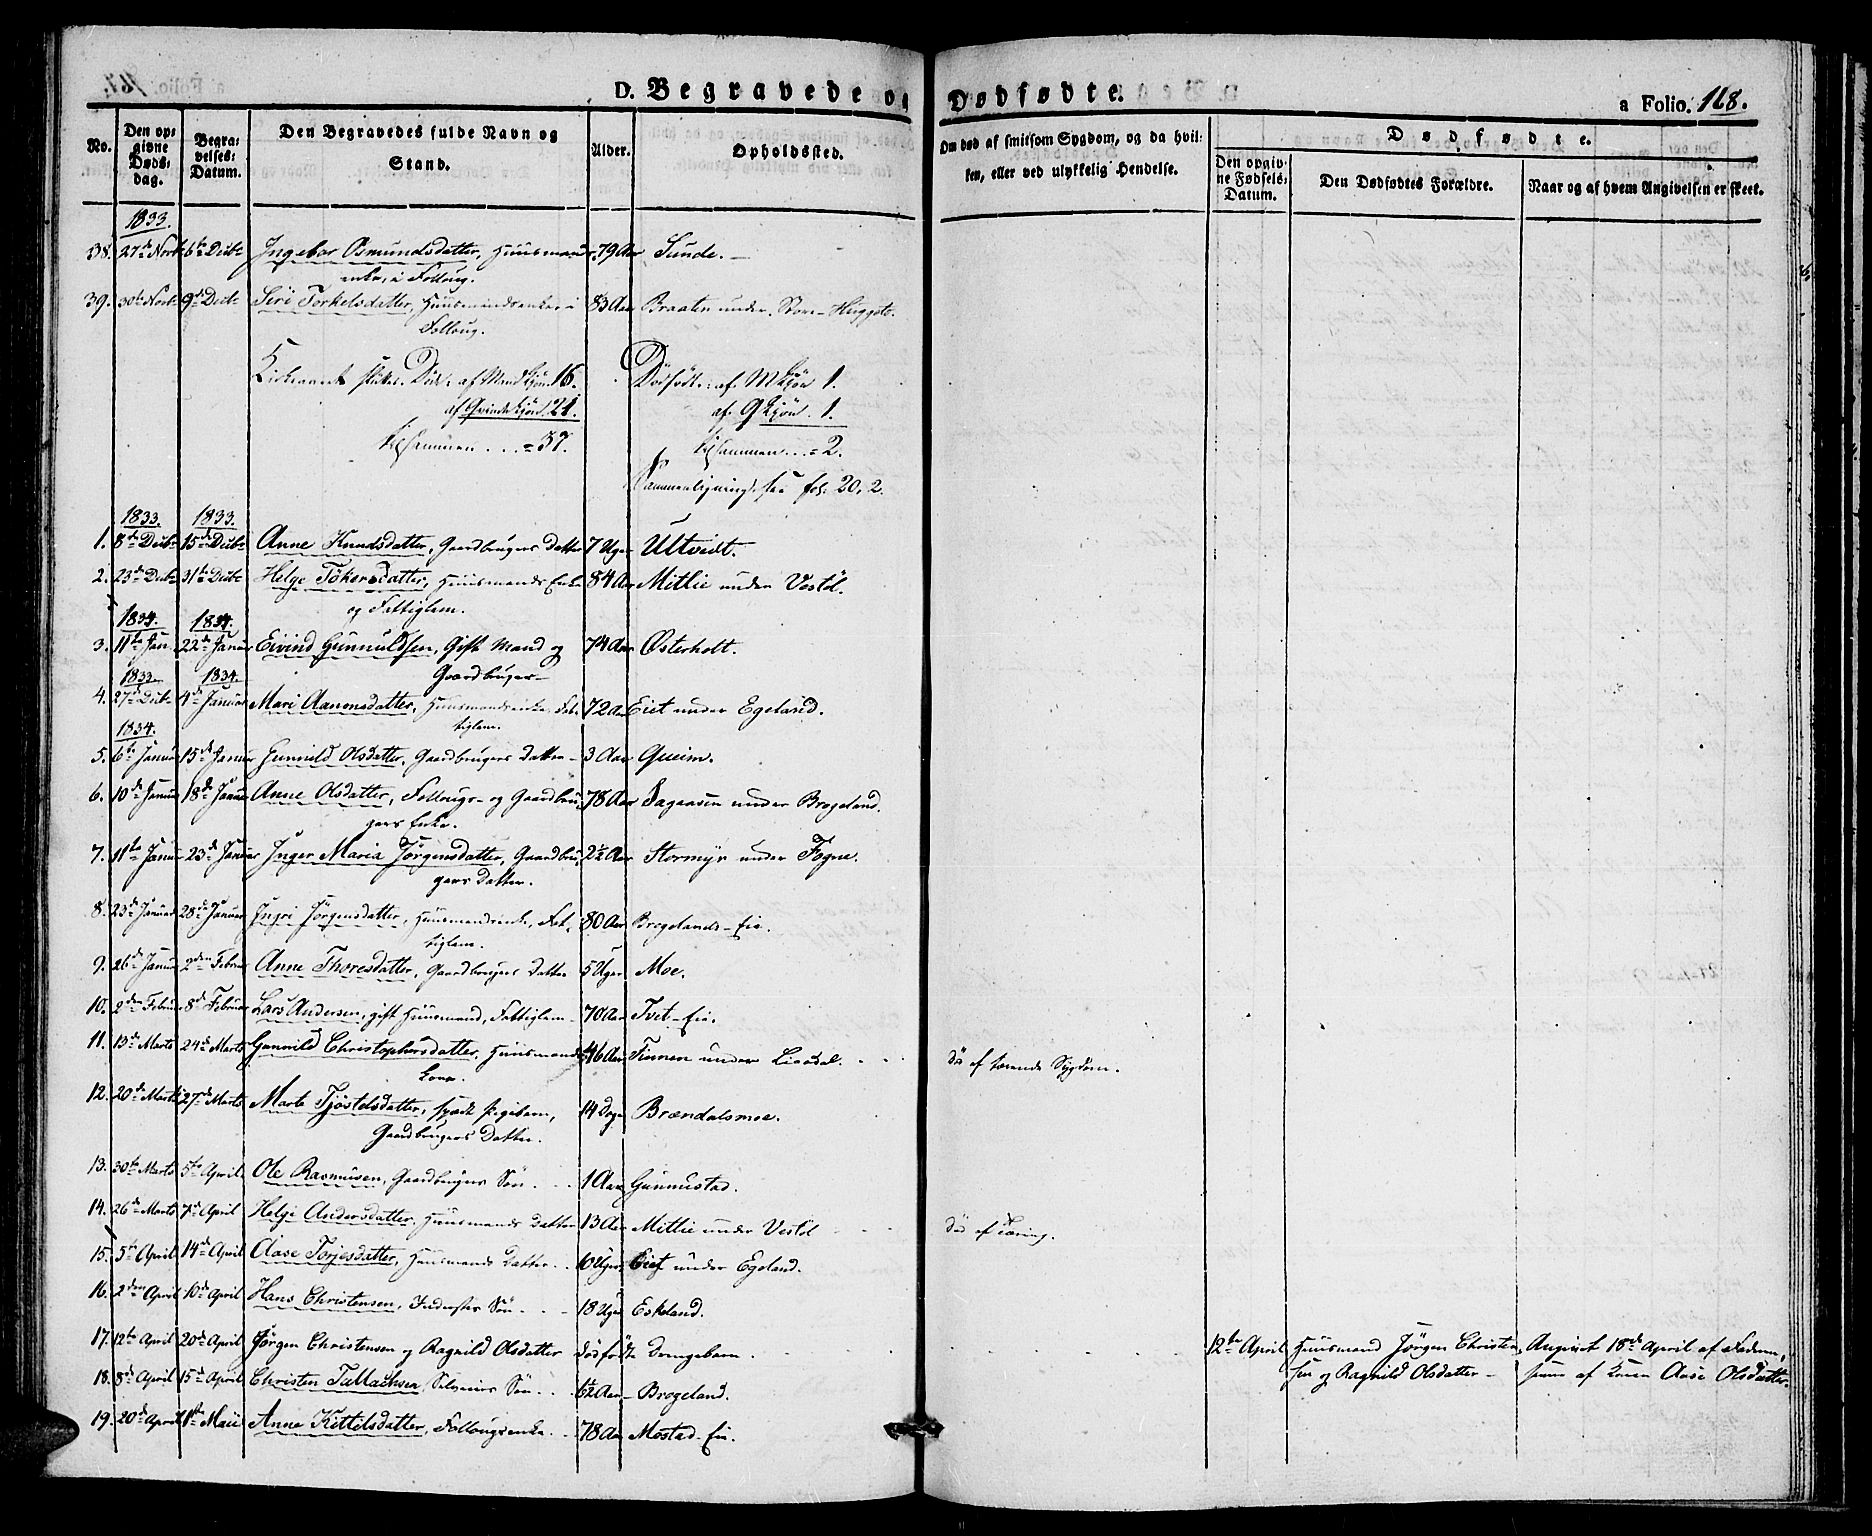 D. Begravede og Dødfødte.
a Folio. 168.
No. | Den opgivne Dødsdag. | Begravelses-Datum. | Den Begravedes fulde Navn og Stand. | Alder. | Opholdssted. | Om død af smitsom Sygdom, og da hvilken, eller ved ulykkelig Hendelse. | Dødfødte. | Den opgivne Fødsels-Datum. | Den Dødfødtes Forældre. | Naar og af hvem Angivelsen er skeet.
1833.
38. 27de Novbr 6te Decbr Ingebor Osmundsdatter, Huusmands- 79 Aar Sunde.
enke, i Follaug.
39. 30te Novbr 9de Decbr Siri Torkelsdatter, Huusmandsenke i 83 Aar Braaten under Store-
Follaug.
Døde: af Mandkjön 16. Dödfödte: af Mkjön 1.
af Qvindekjön 21. af Qkjön. 1.
tilsammen . . . = 37. tilsammen . . . = 2.
Sammenligning see fol: 20, 2.
1833. 1833.
1. 8de Decbr 15de Decbr Anne Knudsdatter, Gaardbrugers Datter 7 Uger Ultveidt.
2. 23de Decbr 31te Decbr Helge Tökersdatter, Huusmands Enke 84 Aar Mitlie under Vestöl.
og Fattiglem.
1834. 1834.
3. 11te Jan 22de Januar Eivind Gunnuldsen, Gift Mand og 74 Aar Østerholt.
Gaardbruger
1833. 1834.
4. 27de Decbr 4de Januar Mari Aanonsdatter, Huusmandsenke, Fat- 72 Aar Eiet under Egeland.
tiglem.
1834.
5. 6te Januar 15de Januar Gunnild Olsdatter, Gaardbrugers Datter 3 Aar Queim.
6. 10de Januar 18de Januar Anne Olsdatter, Follaugs- og Gaardbru- 78 Aar Sagaasen under Brogeland.
gers Enke.
7. 11te Januar 23de Januar Inger Maria Jörgensdatter, Gaardbru- 2½ Aar Stormyr under Fogne.
gers Datter.
8. 23de Januar 28de Januar Ingri Jörgensdatter, Huusmandsenke, Fat- 80 Aar Brogelands-Eie.
tiglem.
9. 26de Januar 2den Februar Anne Thoresdatter, Gaardbrugers Datter 5 Uger Moe.
10. 2den Februar 8de Februar Lars Andersen, gift Huusmand, Fattiglem 70 Aar Tvet-Eie.
11. 13de Marts 24de Marts Gunnild Christophersdatter, Huusmands 46 Aar Tinnen under Lindal. död af tærende Sygdom.
Kone.
12. 20de Marts 27de Marts Marte Tjöstelsdatter, spædt Pigebarn, 14 Dage Brændalsmoe.
Gaardbrugers Datter.
13. 30te Marts 5te April Ole Rasmusen, Gaardbrugers Sön 1 Aar Gunnestad.
14. 26de Marts 7de April Helje Andersdatter, Huusmands Datter 13 Aar Mitlie under Vestöl död af Tæring.
15. 5te April 14de April Aase Torjesdatter, Huusmands Datter 10 Uger Eiet under Egeland.
16. 2den April 10de April Hans Christensen, Inderstes Sön 18 Uger Eskeland.
17. 12te April 20de April Jörgen Christensen og Ragnild Olsdatter dödfödte Drengebarn 12te April Huusmand Jörgen Christen- Angivet 18de April af Faderen,
sen og Ragnild Olsdatter samt af Konen Aase Olsdatter.
18. 8de April 15de April Christen Tallachsen, Selveiers Sön ½ Aar Brogeland.
19. 20de April 1ste Maii Anne Kittelsdatter, Follaugsenke 78 Aar Mostad-Eie.